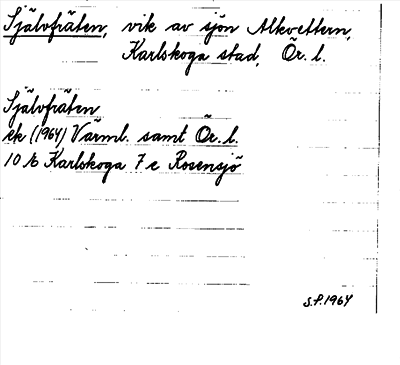 Självfräten, vik av sjön Alkvettern,
Karlskoga stad, Ör. l.
Självfräten
ek (1964) Värml. samt Ör. l.
10 E Karlskoga 7 e Rosensjö
S.P. 1964